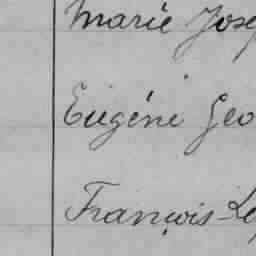 Marie Jose
Eugéne Geo
François-Le